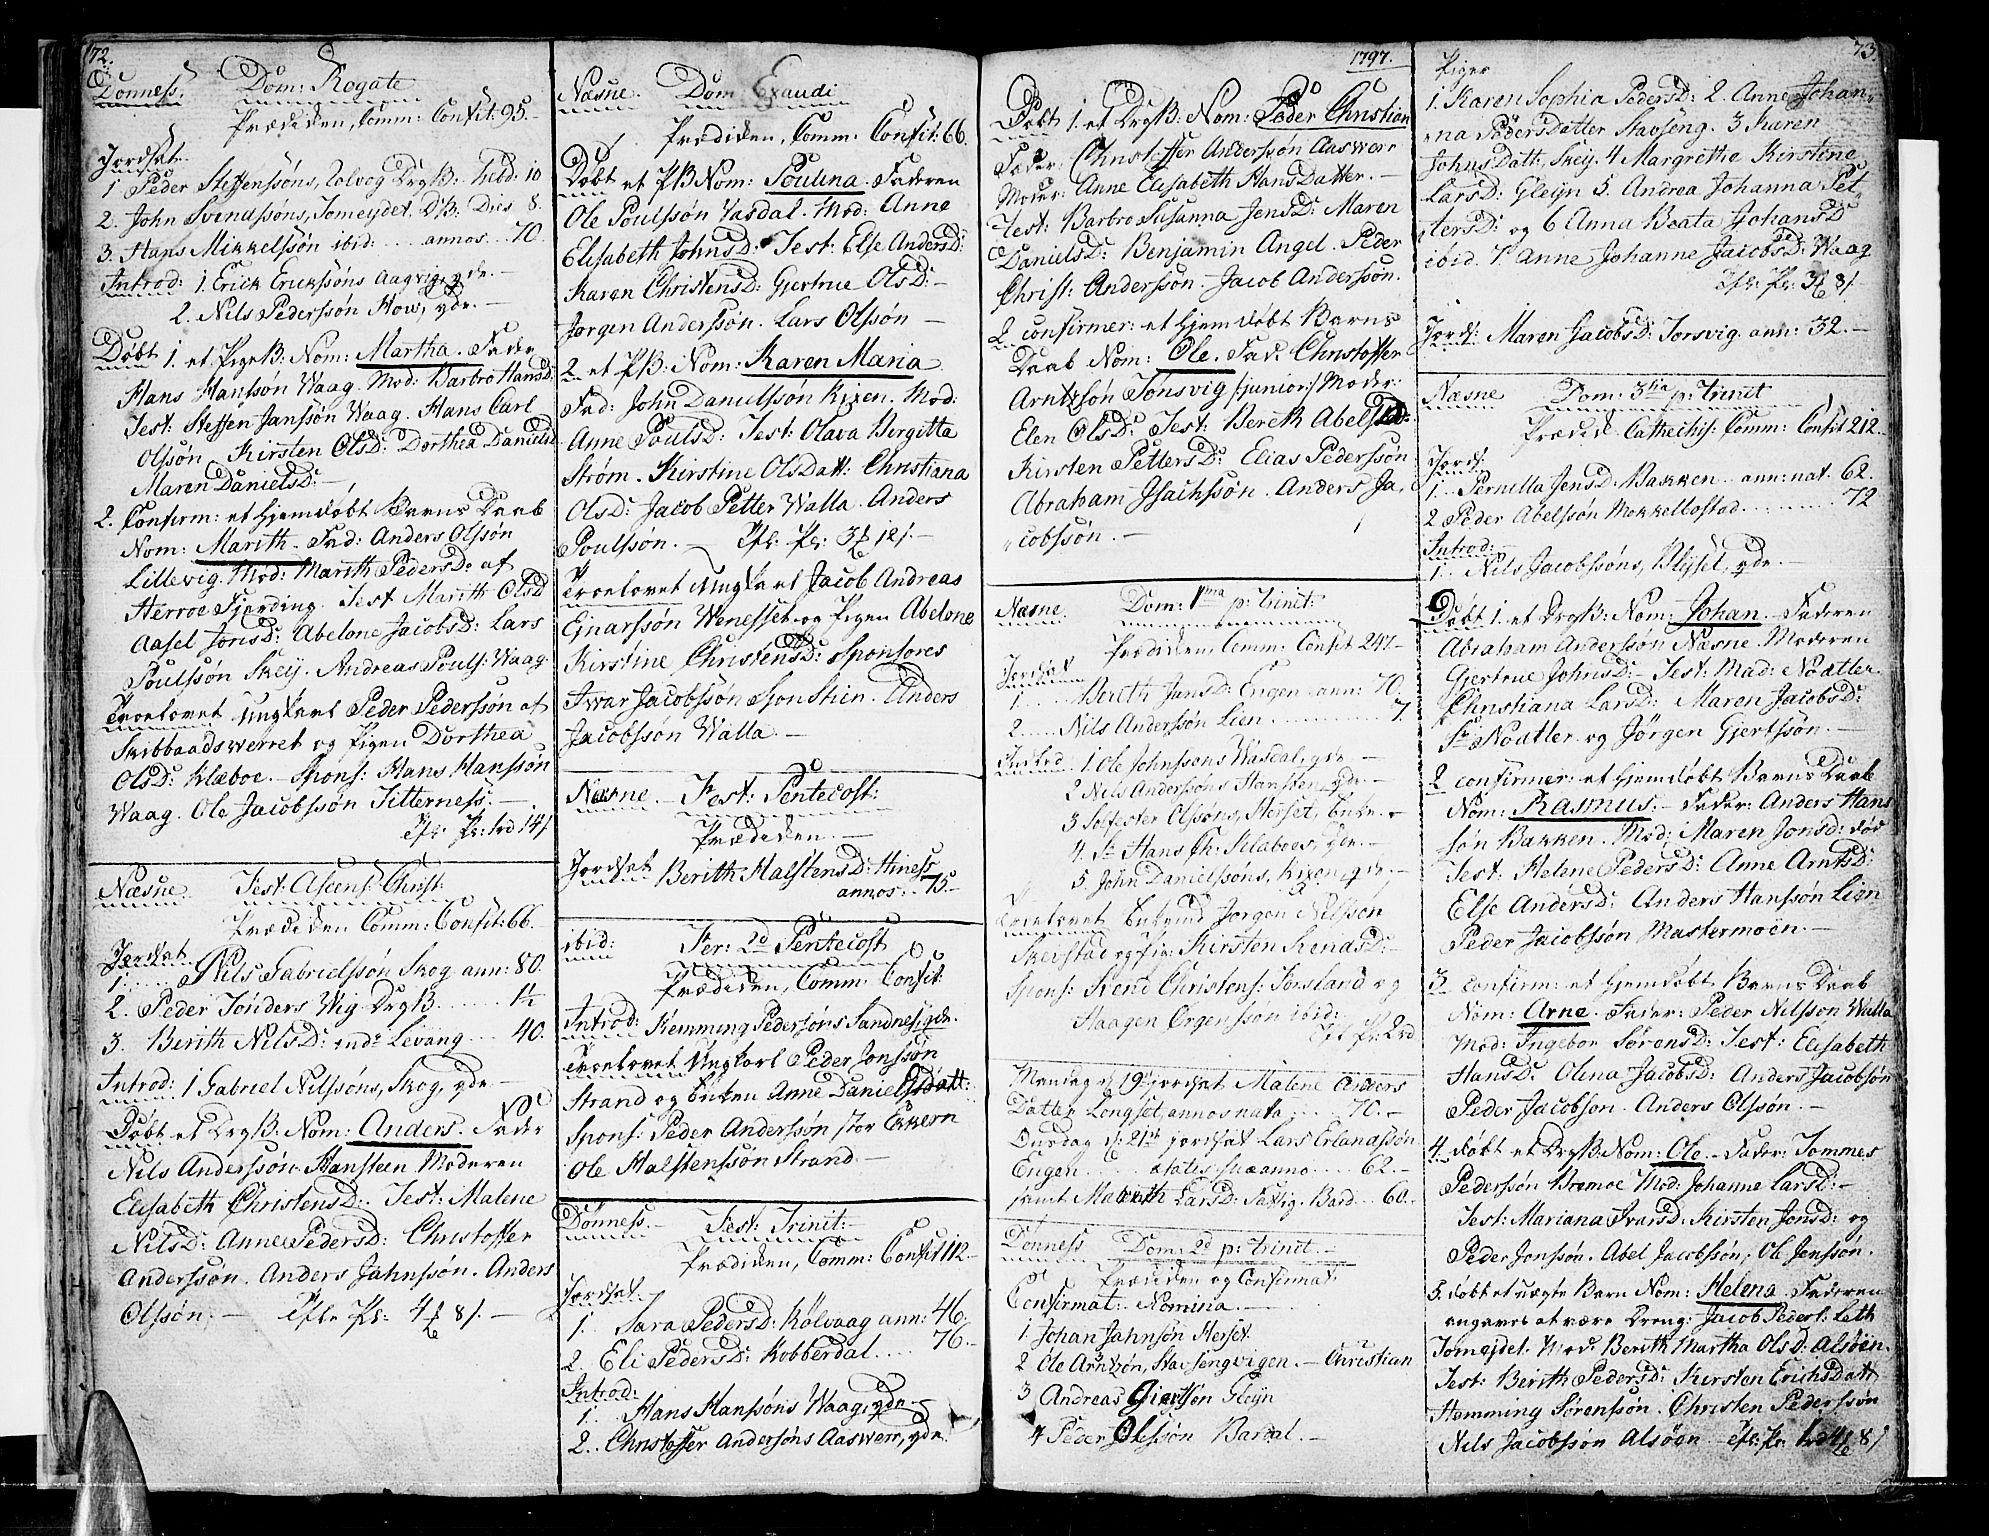 72.
Dønness. Dom: Rogate
Prædiken, Comm: Confit: 95.
Jordsat
1 Peder Steffenssøns, Solvog DrgB: Trebd: 10
2. John Svendssøns, Tomeydet. DB: Dies 8.
3. Hans Mikkelssøn ibid: .... annos ... 70.
Introd: 1. Erick Erickssøns Aagvig, gdr. —
2. Nils Pederssøn How, gdr. —
Døbt 1. et PigeB: Nom: Martha. Fader
Hans Hanssøn Waag. Mod: Barbro HansD:
Test: Steffen Janssøn Waag. Hans Carl
Olssøn. Kirsten OlsD: Dorthea Daniels
Maren DanielsD: —
2. Confirm: et Hjemdøbt Barns Daab
Nom: Marith. Fad: Anders Olssøn
Lillevig. Mod: Marith PedersD: af
Herroe Fjerding. Test Marith OlsD
Aasel JonsD: Abelone JacobsD: Lars
Poulssøn Skeij. Andreas Pouls: Waag.
Troelovet Ungkarl Peder Pederssøn af
Skibbaadsværret og Pigen Dorthea
OlsD: Klæboe. Spons: Hans Hanssøn
Waag. Ole Jacobssøn Titterness. —
Næsne Fest: Ascens: Christ:
Prædiken Comm: Confit: 66.
Jordsat
1. Nils Gabrielssøn Skog ann: 80.
2. Peder Tønders Wig DrgB ..... 1½
3. Berith NilsD: Levang ... 40.
Introd: 1 Gabriel Nilssøns, Skog, gdr —
Døbt et DrgB: Nom: Anders. Fader
Nils Anderssøn Hansteen Moderen
Elisabeth ChristensD: Test: Malene
NilsD: Anne PedersD: Christoffer
Anderssøn. Anders Jahnssøn. Anders
Olssøn. —
Næsne Dom Exaudi
Prædiken, Comm: Confit: 66.
Døbt et PB Nom: Poulina. Faderen
Ole Poulssøn Vasdal. Mod: Anne
Elisabeth JohnsD: Test: Else AndersD:
Karen ChristensD: Gjertrue OlsD: —
Jørgen Anderssøn. Lars Olssøn —
2 et PB: Nom: Karen Maria
Fad: John Danielssøn Rixen. Mod:
Anne PoulsD: Test: Olava Birgitta
Strøm. Kirstine OlsDatt: Christiana
OlsD: Jacob Petter Walla. Anders
Poulssøn. —
Troelovet Ungkarl Jacob Andreas
Ejnarssøn Wenesset og Pigen Abelone
Kirstine ChristensD: Sponsores
Ivar Jacobssøn Sjonstien. Anders
Jacobssøn Walla —
Næsne — Fest: Pentecost:
Prædiken. —
Jordsat Berith HalstensD: Hiness
annos .. 75 —
ibid: Fer: 2d Pentecost
Prædiken, Comm: Confit:
Introd: Hemming Pedersøns Sandnes, gdr.
Troelovet Ungkarl Peder Jonssøn
Strand og Enken Anne DanielsDatt:
Spons: Peder Anderssøn stor Ekkern
Ole Halstenssøn Strand —
Dønness. — Fest: Trinit: —
Prædiken, Comm: Confit 112 —
Jordsat
1. Sara PedersD: Kølvaag ann: 46.
2. Eli PedersD: Kobberdal .... 76.
Introd:
1. Hans Hanssøns Waag, gdr —
2. Christoffer Andersøns Aaswerr, gdr.
1797.
Døbt 1. et DrgB: Nom: Peder Christian
Fader Christoffer Anderssøn Aaswær
Moder: Anne Elisabeth HansDatter. —
Test: Barbro Susanna JensD: Maren
DanielsD: Benjamin Angel. Peder
Christ: Anderssøn. Jacob Anderssøn.
2 confirmer: et Hjemdøbt Barns
Daab Nom: Ole. Fad: Christoffer
Arntzøn Tonsvig /:junior:/ Moder:
Elen OlsD: Test: Bereth AbelsD:
Kirsten PettersD: Elias Pederssøn
Abraham Jsachssøn. Anders Ja,
cobssøn. —
Næsne Dom: 1ma p: Trinit:
Prædiken, Comm: Confit 247 —
Jordsat
1. Berith JansD: Engen ann: 70.
2. Nils Anderssøn Lien ......... 7.
Introd 1. Ole Johnssøns Wasdal, gdr —
2 Nils Anderssøns Hansteen, gdr —
3 Solfester Olssøns, Herset, Enkr. —
4. Sr Hans Ch: Klaboes, gdr. —
5. John Danielssøns, Rixen, gdr. —
Troelovet Enkemd Jørgen Nilssøn
Skeistad og Pig: Kirsten SvendsD: —
Spons: Svend Christens: Tonsland og
Haagen Ørgenssøn ibid:
Mandag d: 19 jordsat Malene Anders
Datter Longset, annos nata .... 70. —
Onsdag d: 21st jordsat Lars Erlandssøn
Engen ... ætatis suæ anno ... 62. —
samt Mareth LarsD: Fattig: Bard ... 60.
Dønness Dom: 2d p: Trinit. —
Prædiken og Confirmat:
Confirmat: Nomina. —
1. Johan Jahnsøn Herset
2 Ole Arntzøn, Stavsengvigen. — Christian
3 Andreas Giertsøn Gleijn
4 Peder Olssøn Bardal. —
73.
Piger
1. Karen Sophia PedersD: 2. Anne Johan,
na PedersDatter Stavseng. 3 Karen
JohnsDatt, Skeij. 4 Margrethe Kirstine
LarsD: Gleijn 5. Andrea Johanna Pet,
tersD: og 6 Anna Beata JohansD
ibid. 7. Anne Johanne JacobsD: Waag
Jords: Maren JacobsD: Torsvig. ann: 32. —
Næsne Dom: 3tia p: Trinit
Prædik Cathechis: Comm: Confit 212.
Jords:
1. Pernilla JensD. Bakken .. ann: nat. 62.
2 Peder Abelssøn Mokkelbostad ......... 72
Introd: —
1. Nils Jacobssøns, Blijsel, gdr. —
Døbt 1. et DrgB: Nom: Johan. Faderen
Abraham Anderssøn Næsne. Moderen
Gjertrue JohnsD: — Test: Mad: Nodtler
Christiana LarsD: Maren JacobsD:
Sr Nodtler og Jørgen Gjertssøn. —
2 confirmer: et Hjemdøbt Barns Daab
Nom: Rasmus. — Fader: Anders Hans
søn Bakken. Mod: Maren JonsD: død
Test: Helene PedersD: Anne ArntsD:
Else AndersD: Anders Hanssøn Lien
Peder Jacobssøn Mastermoen. —
3 confirm: et Hjemdøbt Barns Daab
Nom: Arne. Fader: Peder Nilsson Walla
Mod: Ingebor SørensD: Test: Elisabeth
HansD: Olina JacobsD: Anders Jacobsøn
Peder Jacobson. Anders Olssøn. —
4. døbt et DrgB: Nom: Ole. — Fader: Tommes
Pederssøn Bremoe Mod: Johanne LarsD: —
Test: Mariana IvarsD: Kirsten JonsD: og
Peder Jonssøn. Abel Jacobssøn, Ole Jonssøn.
5. døbt et uægte Barn Nom: Helena. Faderen
angaves at være Dreng: Jacob Peders: Leth
Tomejdet. Mod: Berith Martha OlsD: Alsøen.
Test: Berith PedersD: Kirsten ErichsDatt
Hemming Sørenssøn. Christen Pederssøn
Nils Jacobssøn Alsøen